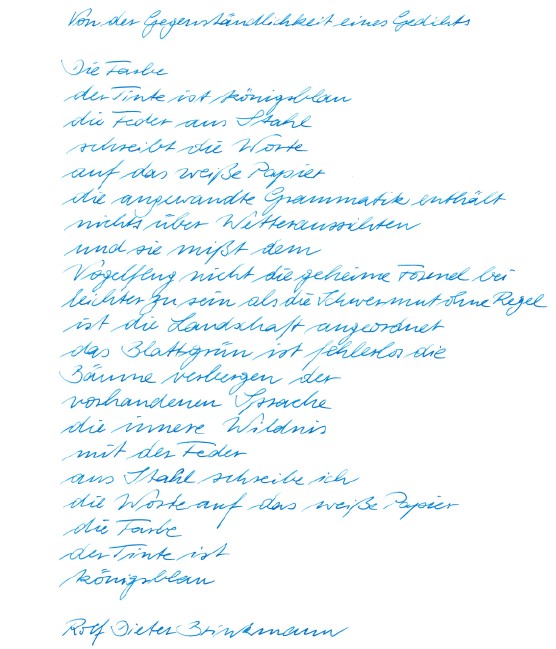 Von der Gegenständlichkeit eines Gedichts
Die Farbe
der Tinte ist königsblau
die Feder aus Stahl
schreibt die Worte
auf das weiße Papier
die angewandte Grammatik enthält
nichts über Wetteraussichten
und sie mißt dem
Vogelflug nicht die geheime Formel bei
leichter zu sein als die Schwermut ohne Regel
ist die Landschaft angeordnet
das Blattgrün ist fehlerlos die
Bäume verbergen der
vorhandenen Sprache
die innere Wildnis
mit der Feder
aus Stahl schreibe ich
die Worte auf das weiße Papier
die Farbe
der Tinte ist
königsblau
Rolf Dieter Brinkmann